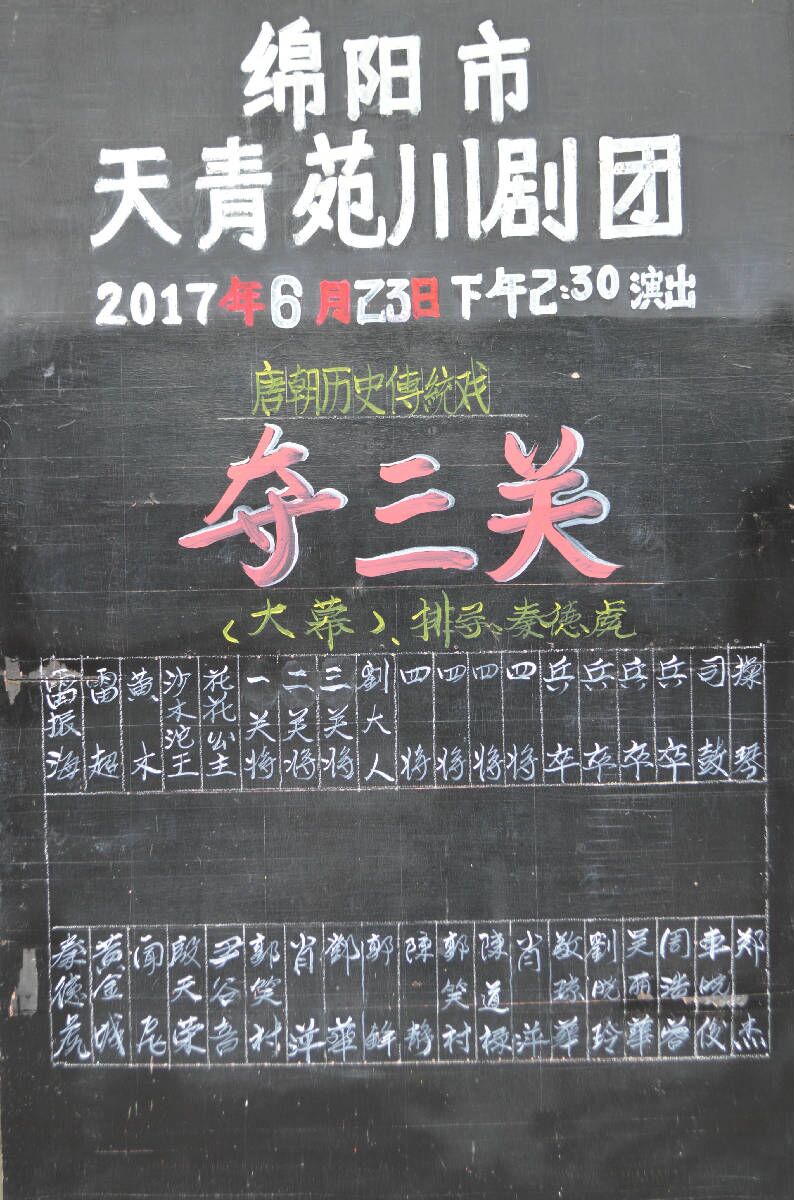 绵阳市
天青苑川剧团
2017年6月23日下午2:30演出
唐朝历史傳統戏
夺三关
(大幕)、排导:秦德虎
雷振海 雷超 黄木 沙木沱王 花花公主 一关将 二关将 三关将 劉大人 四将 四将 四将 四将 兵卒 兵卒 兵卒 兵卒 司鼓 操琴
秦德虎 黄金城 闻尼 殷天荣 尹谷音 郭笑村 肖萍 鄧華 郭 陳静 郭笑村 陳道极 肖萍 敬琼華 劉晓玲 吴丽華 周浩誉 車晓俊 郑杰